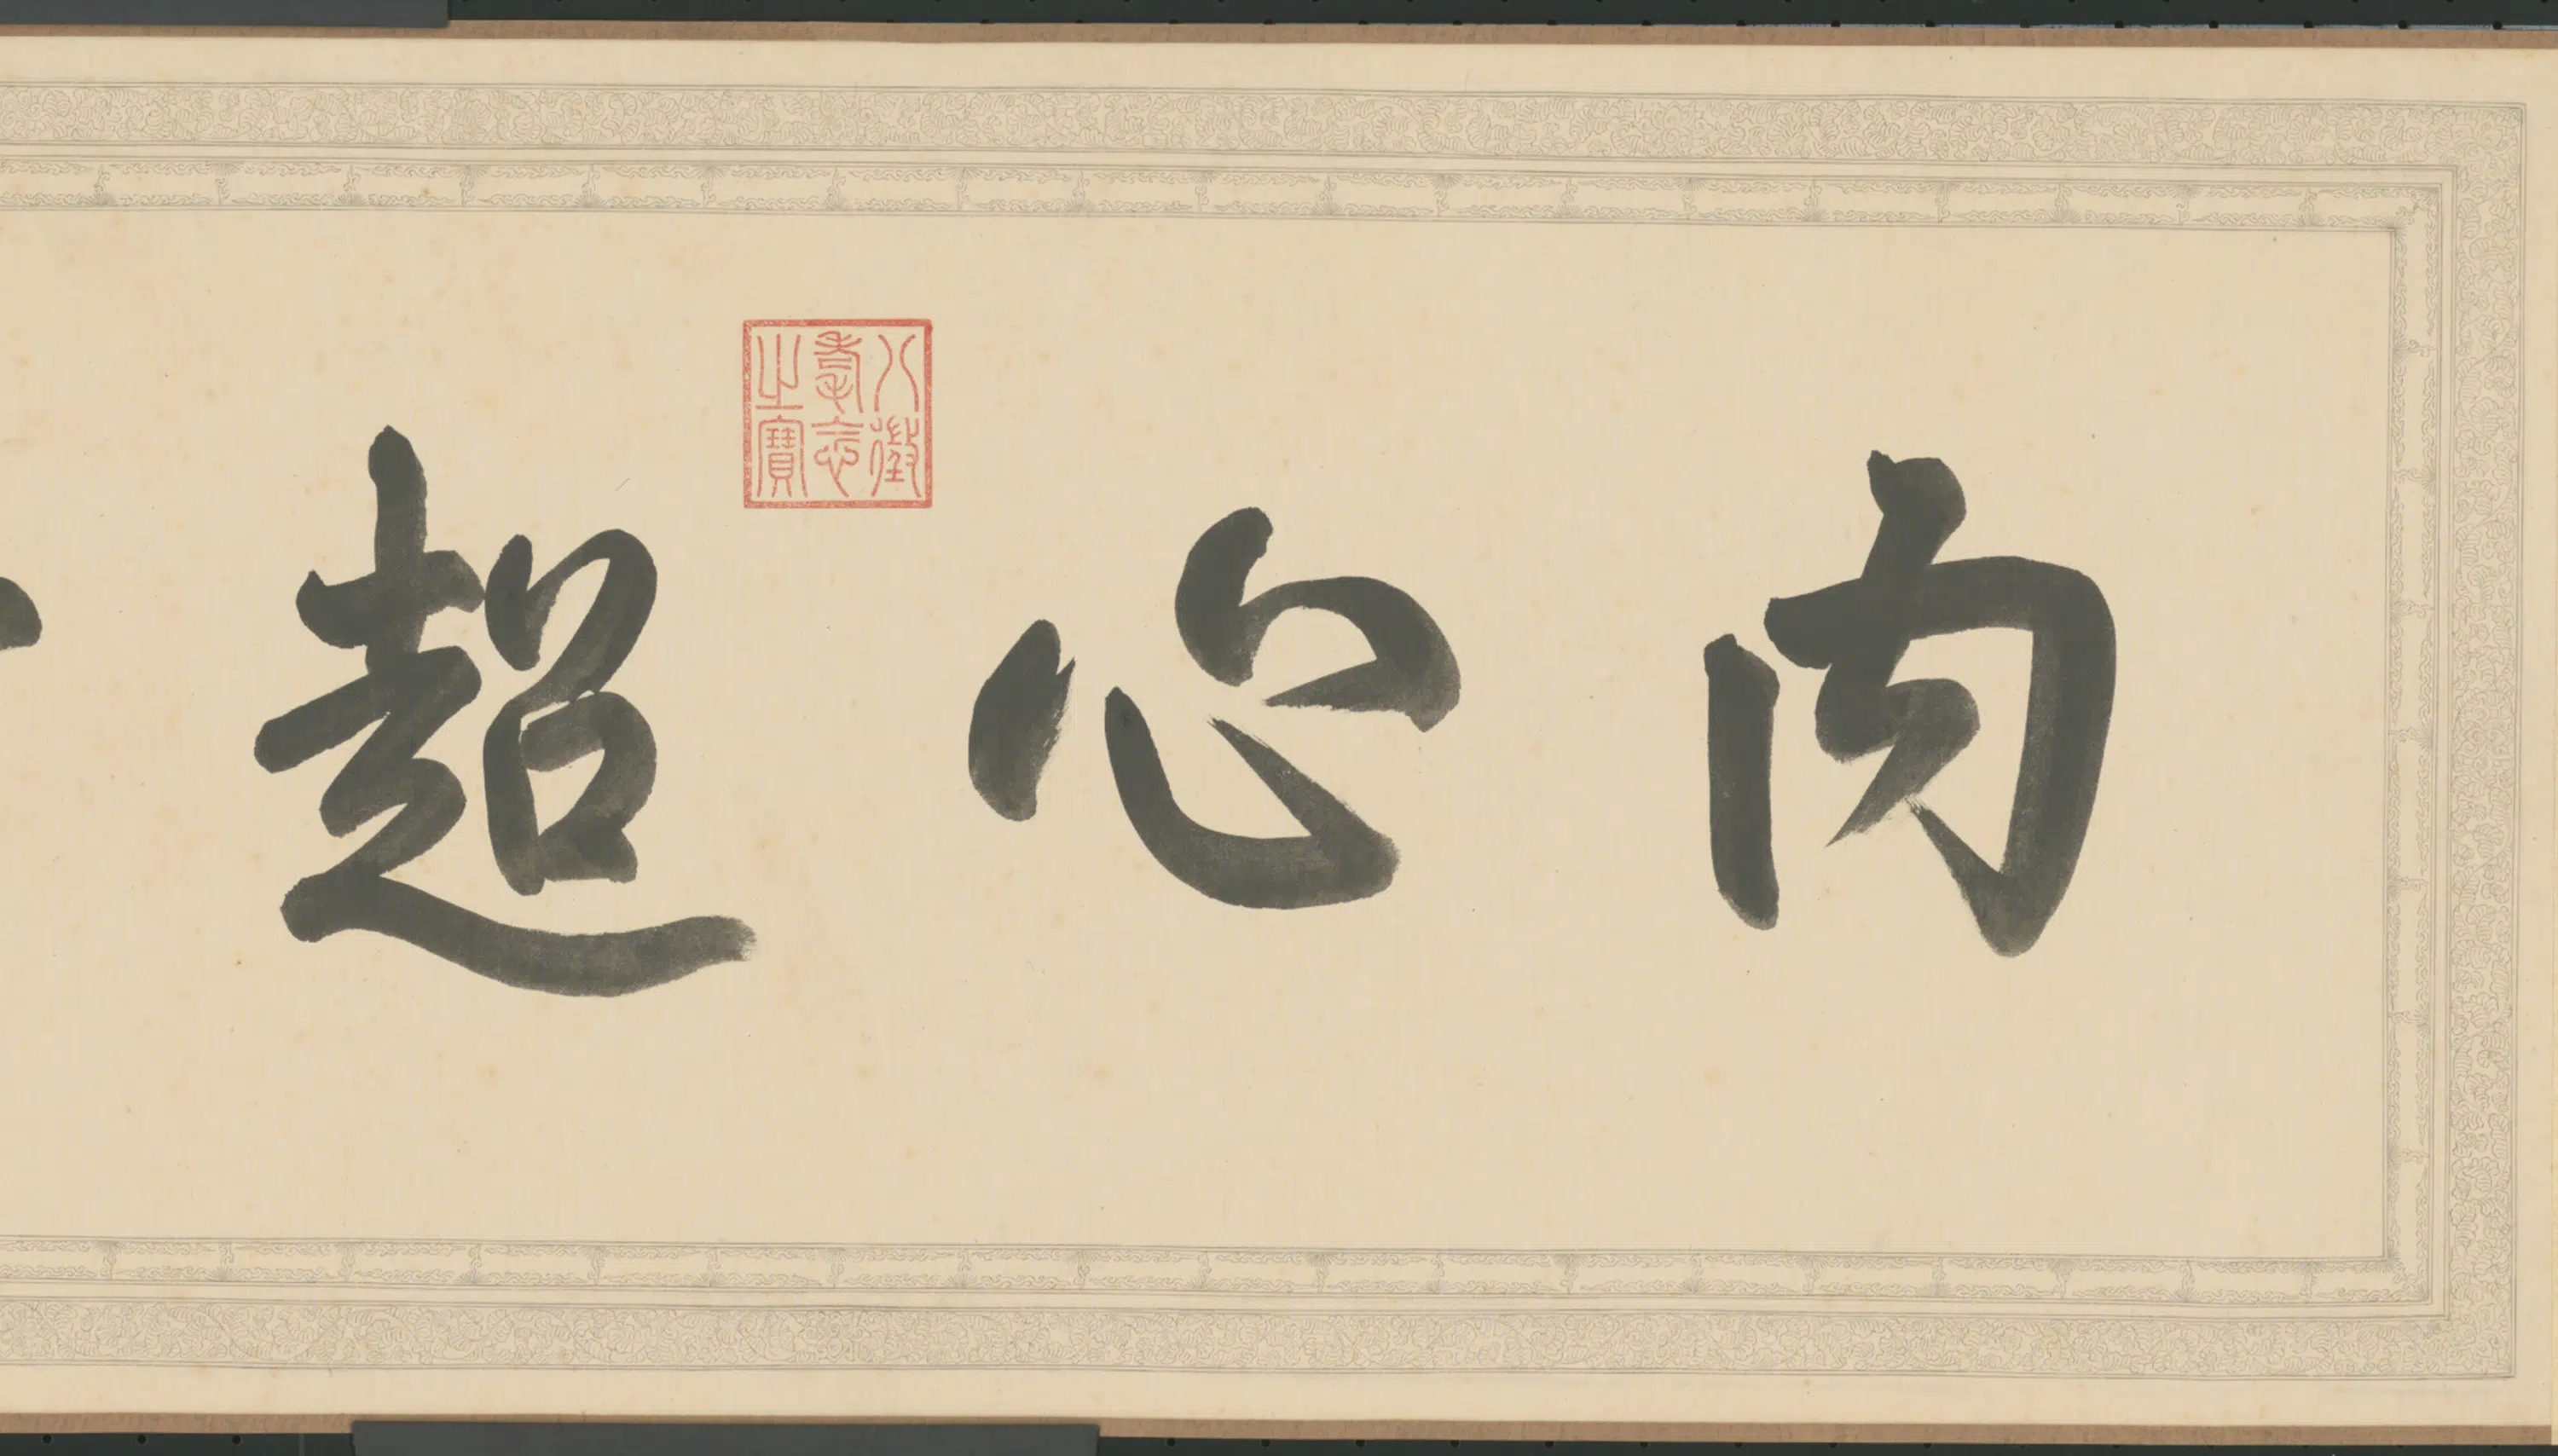 內心超
八徵耄念之寶